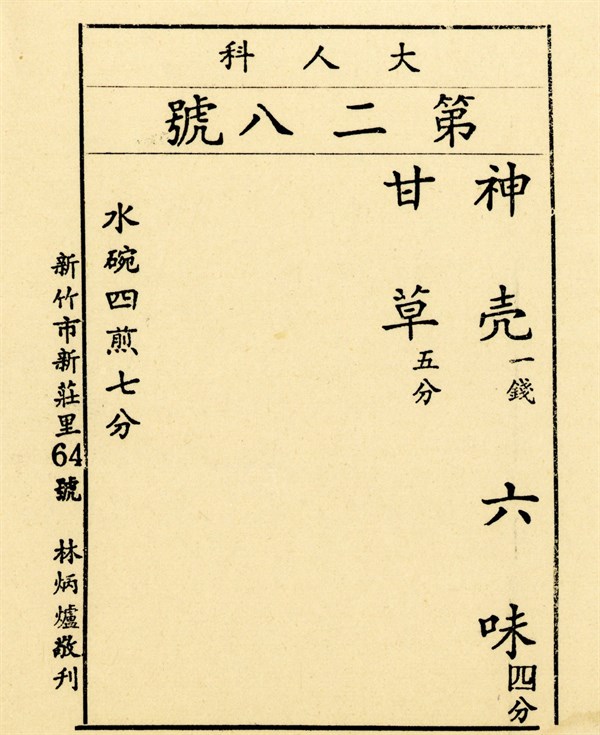 大人科
第二八號
神壳一錢 六味四分
甘草五分
水碗四煎七分
新竹市新莊里64號 林炳爐敬刊